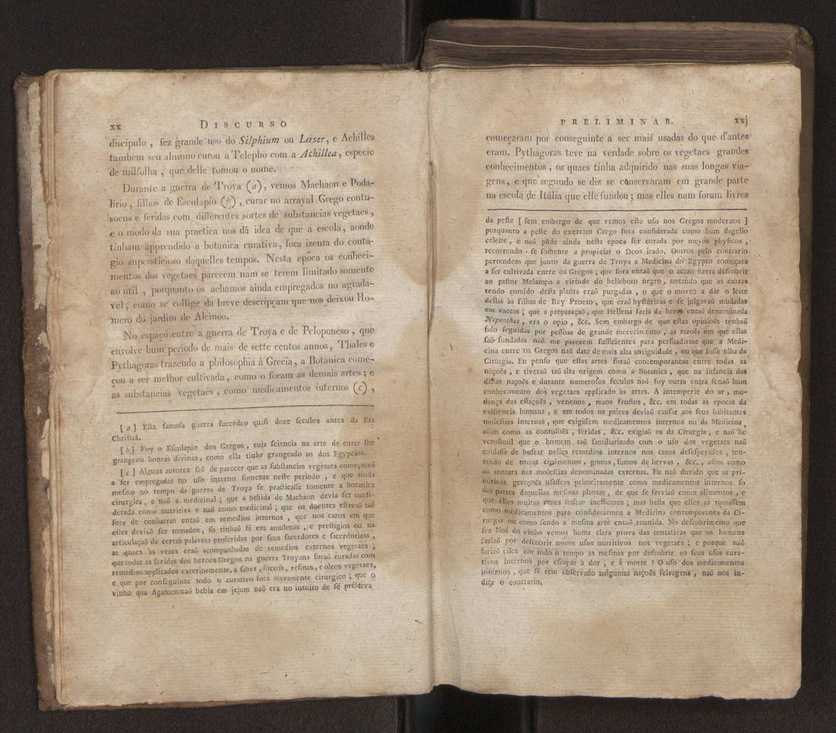 xx DISCURSO
discipulo, fez grande uso do Silphium ou Laser, e Achilles
tambem seu alumno curou a Telepho com a Achillea, especie
de milfolha, que delle tomou o nome.
Durante a guerra de Troya (a), vemos Machaon e Poda-
lirio, filhos de Esculapio (b), curar no arrayal Grego contu-
soens e feridas com differentes sortes de substancias vegetaes,
e o modo da sua practica nos dá idea de que a escola, aonde
tinham apprendido a botanica curativa, fora isenta do conta-
gio supersticioso daquelles tempos. Nesta epoca os conheci-
mentos dos vegetaes parecem nam se terem limitado somente
ao util, porquanto os achamos ainda empregados no agrada-
vel; como se collige da breve descripçam que nos deixou Ho-
mero do jardim de Alcinoo.
No espaço entre a guerra de Troya e de Peloponeso, que
envolve hum periodo de mais de sette centos annos, Thales e
Pythagoras trazendo a philosophia á Grecia, a Botanica come-
çou a ser melhor cultivada, como o foram as demais artes; e
as substancias vegetaes, como medicamentos internos (c),
[a] Esta famosa guerra succedeo quasi doze seculos antes da Era
Christãã.
[b] Foy o Esculapio dos Gregos, cuja sciencia na arte de curar lhe
grangeou honras divinas, como ella tinha grangeado ao dos Egypcios.
[c] Alguns autores saõ de parecer que as substancias vegetaes começaraõ
a ser empregadas no uso interno somente neste periodo, e que ainda
mesmo no tempo da guerra de Troya se practicasse somente a botanica
cirurgica, e naõ a medicinal; que a bebida de Machaon devia ser consi-
derada como nutricia e naõ como medicinal; que os doentes estavaõ taõ
fora de confiarem entaõ em remedios internos, que nos casos em que
elles deviaõ ser tomados, so tinhaõ fé em amuletos, e prestigios ou na
articulaçaõ de certas palavras proferidas por seus sacerdotes e sacerdotisas,
as quaes ás vezes eraõ acompanhadas de remedios externos vegetaes;
que todas as feridas dos heroes Gregos na guerra Troyana foraõ curadas com
remedios applicados exteriormente, a saber, succos, resinas, e oleos vegetaes,
e que por conseguinte todo o curativo fora meramente cirurgico; que o
vinho que Agamemnaõ bebia em jejum naõ era no intuito de se preservar
PRELIMINAR. xxj
começaram por conseguinte a ser mais usadas do que d'antes
eram. Pythagoras teve na verdade sobre os vegetaes grandes
conhecimentos, os quaes tinha adquirido nas suas longas via-
gens, e que segundo se diz se conservaram em grande parte
na escola de Italia que elle fundou; mas elles nam foram livres
da peste [sem embargo de que vemos este uso nos Gregos modernos]
porquanto a peste do exercito Grego fora considerada como hum flagello
celeste, e naõ póde ainda nesta epoca ser curada por meyos physicos,
recorrendo-se somente a propiciar o Deos irado. Outros pelo contrario
pertendem que junto da guerra de Troya a Medicina do Egypto começara
a ser cultivada entre os Gregos; que fora entaõ que o acaso fizera descobrir
ao pastor Melampo a virtude do heleboro negro, notando que as cabras
tendo comido desta planta eraõ purgadas, o que o moveo a dar o leite
dellas ás filhas de Rey Proeto, que eraõ hystericas e se julgavaõ mudadas
em vaccas; que a preparaçaõ, que Hellena fazia da herva entaõ denominada
Nepenthes, era o opio, &c. Sem embargo de que estas opinioẽs tenhaõ
sido seguidas por pessoas de grande merecimento, as razoẽs em que ellas
saõ fundadas naõ me parecem sufficientes para persuadirme que a Medi-
cina entre os Gregos naõ date de mais alta antiguidade, ou que fosse filha da
Cirurgia. Eu penso que estas artes foraõ contemporaneas entre todas as
naçoẽs, e tiveraõ taõ alta origem como a Botanica, que na infancia das
dittas naçoẽs e durante numerosos seculos naõ foy outra cousa senaõ hum
conhecimento dos vegetaes applicado ás artes. A intemperie do ar, mu-
dança das estaçoẽs, venenos, maos fructos, &c. em todas as epocas da
existencia humana, e em todos os paizes deviaõ causar aos seus habitantes
molestias internas, que exigissem medicamentos internos ou da Medicina,
assim como as contusoẽs, feridas, &c. exigiaõ os da Cirurgia, e naõ he
verosimil que o homem taõ familiarizado com o uso dos vegetaes naõ
cuidasse de buscar nelles remedios internos nos casos desesperados, ten-
tando de tomar cozimentos, gomas, sumos de hervas, &c., assim como
os tentara nas molestias denominadas externas. Eu naõ duvido que as pri-
meiras geraçoẽs usassem primeiramente como medicamentos internos so
das partes daquellas mesmas plantas, de que se serviaõ como alimentos, e
que ellas muitas vezes fossem inefficazes; mas basta que elles as tomassem
como medicamentos para considerarmos a Medicina contemporanea da Ci-
rurgia ou como sendo a mesma arte entaõ reunida. No descobrimento que
fez Noé do vinho vemos huma clara prova das tentativas que os homens
faziaõ por descobrir novos usos nutritivos nos vegetaes; e porque naõ
fariaõ elles em todo o tempo as mesmas por descobrir os seus usos cura-
tivos internos por escapar á dor, e á morte? O uso dos medicamentos
internos, que se tem observado nalgumas naçoẽs selvagens, naõ nos in-
dica o contrario.